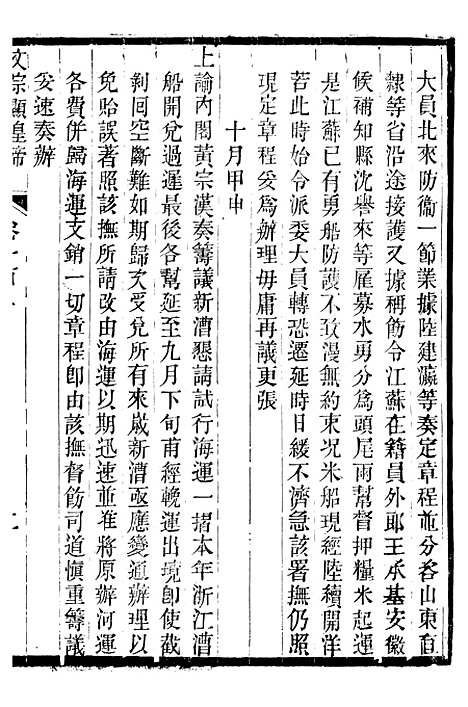 大員北來防衞一節業據陸建瀛等奏定章程並分咨山東直
隸等省沿途接護又據稱飭令江蘇在籍員外郎王承基安徽
候補知縣沈譽來等雇募水勇分爲頭尾兩幫督押糧米起運
是江蘇已有勇船防護不致漫無約束況米船現經陸續開洋
若此時始令派委大員轉恐遷延時日緩不濟急該署撫仍照
現定章程妥爲辦理毋庸再議更張
十月甲申
上諭內閣黃宗漢奏籌議新漕懇請試行海運一摺本年浙江漕
船開兌過遲最後各幫延至九月下旬甫經輓運出境卽使截
剝回空斷難如期歸次受兌所有來歲新漕亟應變通辦理以
免貽誤著照該撫所請改由海運以期迅速並准將原辦河運
各費併歸海運支銷一切章程卽由該撫督飭司道愼重籌議
妥速奏辦
文宗顯皇帝
卷一百